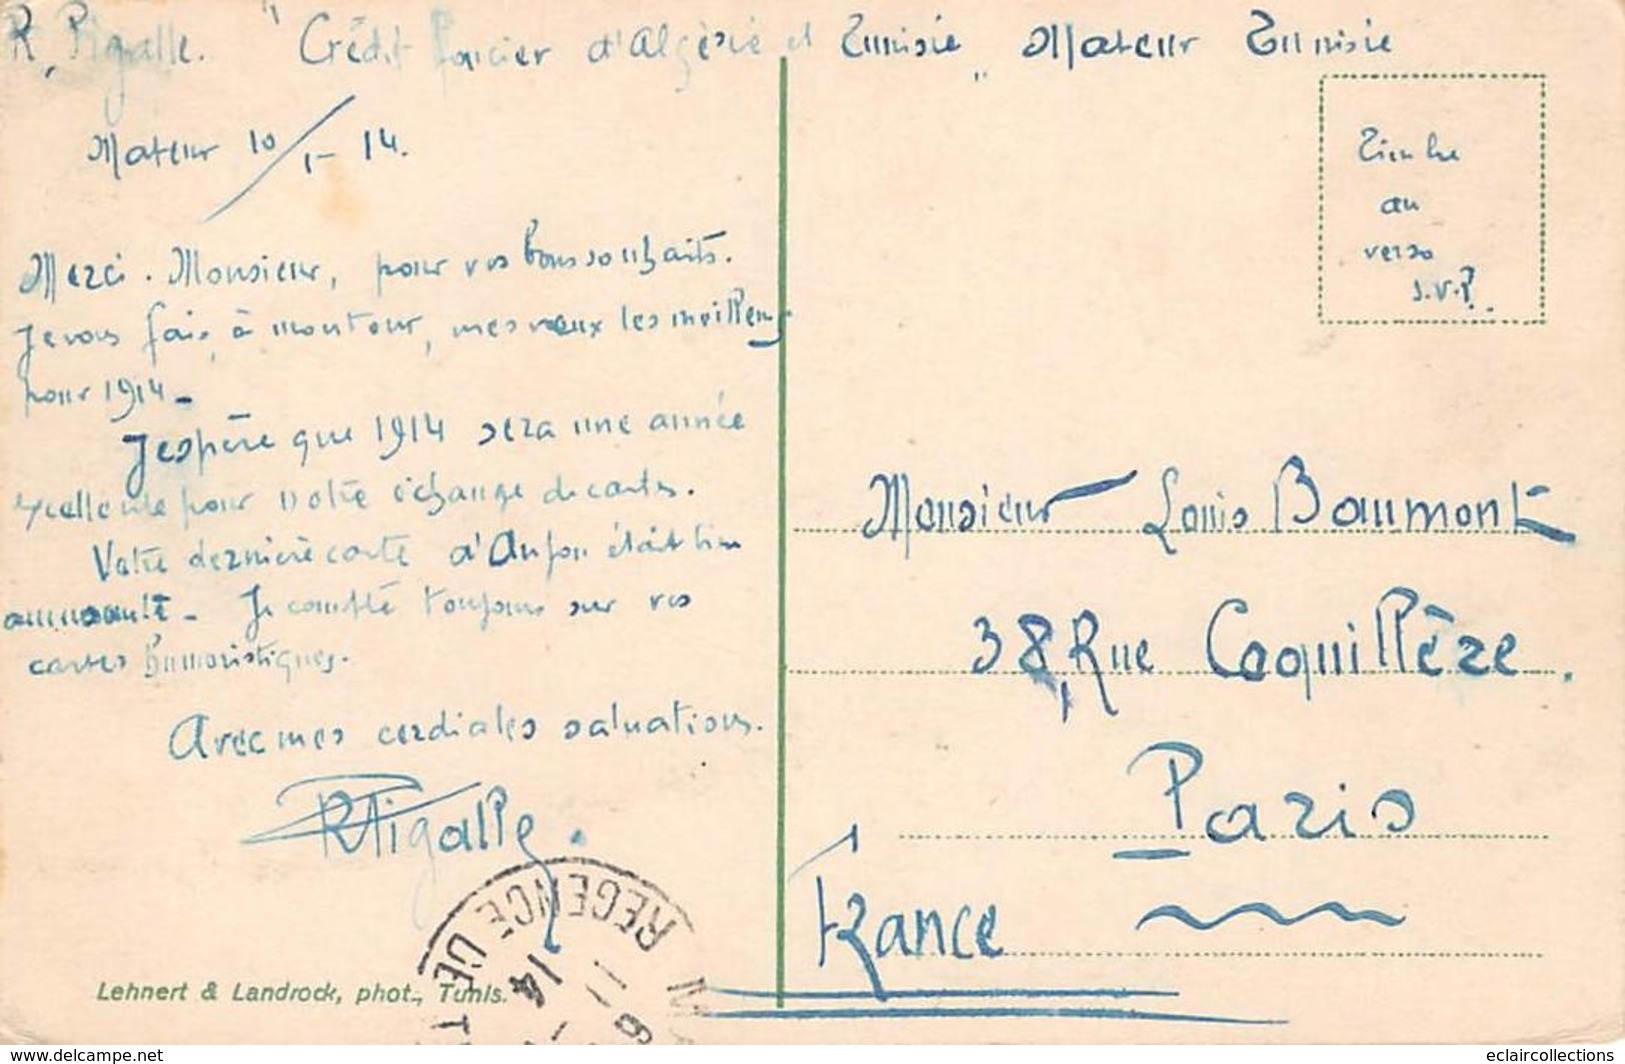 R. Pigalle. "Crédit Foncier d'Algérie et Tunisie" Mateur Tunisie
Mateur 10/1-14.
Merci. Monsieur, pour vos bons souhaits.
Je vous fais, à mon tour, mes vœux les meilleurs
pour 1914-
J'espère que 1914 sera une année
excellente pour notre échange de cartes.
Votre dernière carte d'Anjou était bien
amusante- Je compte toujours sur vos
cartes humoristiques.
Avec mes cordiales salutations.
R Pigalle.
Timbre
au
verso
S.V.P.
Monsieur Louis Baumont
38, Rue Coquillère.
Paris
France
REGENCE DE T
14
Lehnert & Landrock, phot., Tunis.
www.delcampe.net
eclaircollections